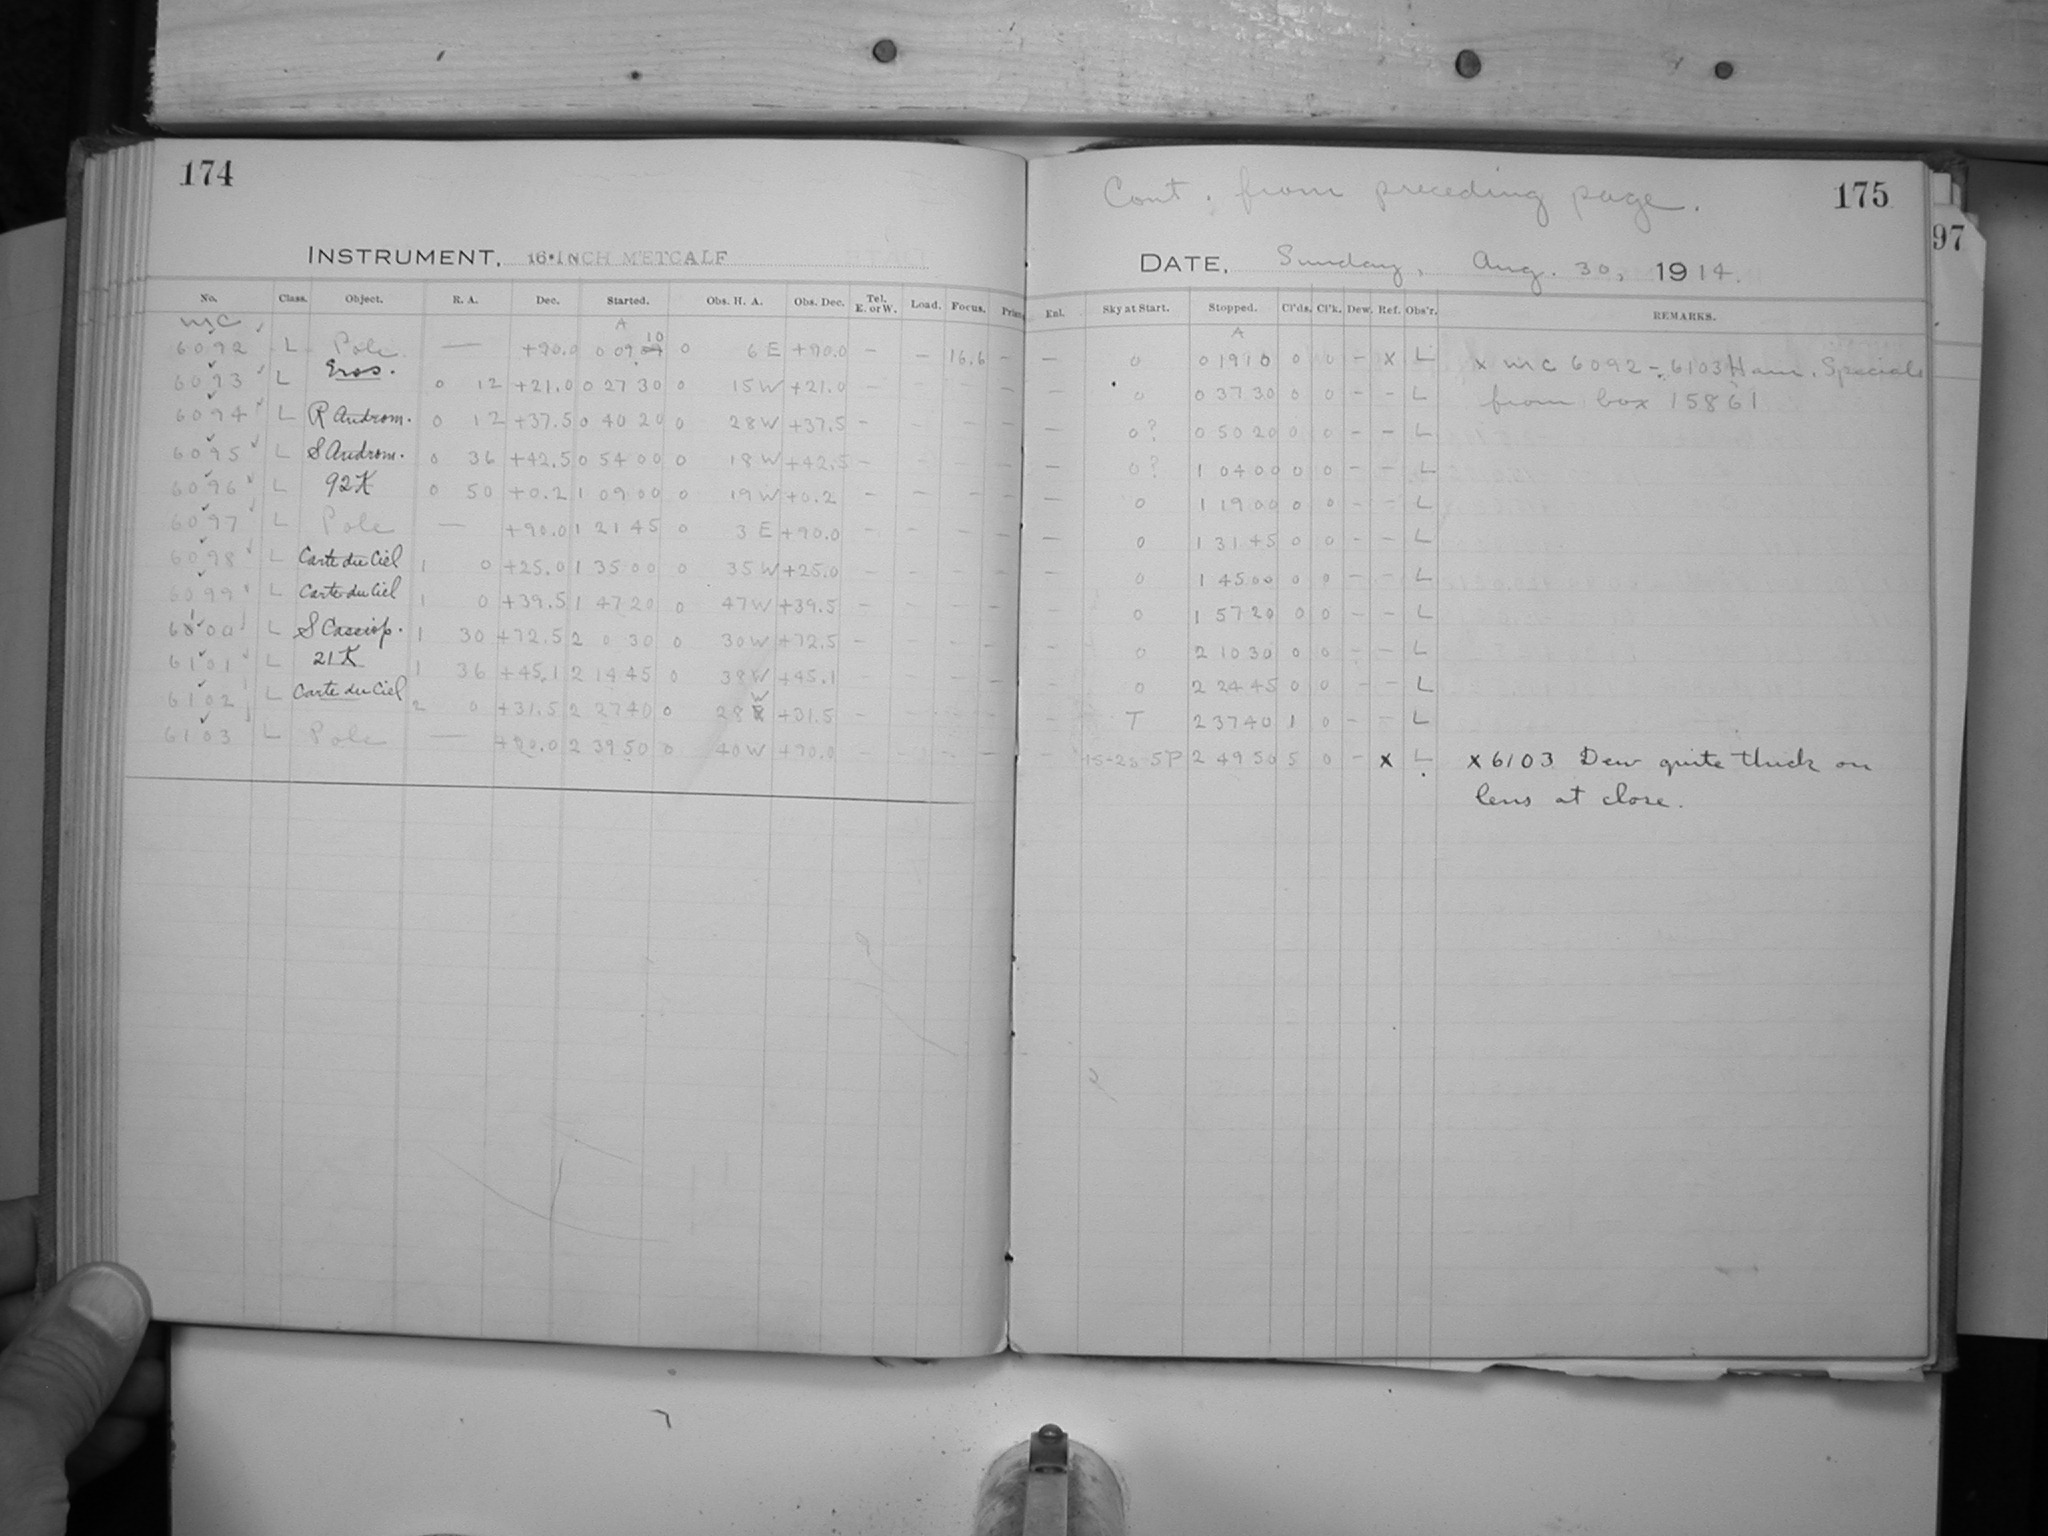 174
INSTRUMENT. 16-INCH METCALF
No. Class. Object. R. A. Dec. Started. Obs. H. A. Obs. Dec. Tel. E. or W. Load. Focus.
MC A
6092 L Pole — +90.0 0 09 10 0 6 E +90.0 — — 16.6 —
6093 L Eros. 0 12 +21.0 0 27 30 0 15 W +21.0 —
6094 L R Androm. 0 12 +37.5 0 40 20 0 28 W +37.5 — — — —
6095 L S Androm. 0 36 +42.5 0 54 00 0 18 W +42.5 — — — —
6096 L 92 K 0 50 +0.2 1 09 00 0 19 W +0.2 — — — —
6097 L Pole — +90.0 1 21 45 0 3 E +90.0 — — — —
6098 L Carte du Ciel 1 0 +25.0 1 35 00 0 35 W +25.0 — — — —
6099 L Carte du Ciel 1 0 +39.5 1 47 20 0 47 W +39.5 — — — —
6100 L S Cassiop. 1 30 +72.5 2 0 30 0 30 W +72.5 — — — —
6101 L 21 K 1 36 +45.1 2 14 45 0 38 W +45.1 — — — —
6102 L Carte du Ciel 2 0 +31.5 2 27 40 0 28 W +31.5 — — — —
6103 L Pole — +90.0 2 39 50 0 40 W +90.0 — — — —
Cont. from preceding page. 175
DATE. Sunday, Aug. 30, 1914.
Enl. Sky at Start. Stopped. Cl'ds. Cl'k. Dew. Ref. Obs'r. REMARKS.
A
— 0 0 19 10 0 0 — x L x MC 6092 - 6103 Ham. Specials
— 0 0 37 30 0 0 — — L from box 15861
— 0? 0 50 20 0 0 — — L
— 0? 1 04 00 0 0 — — L
— 0 1 19 00 0 0 — — L
— 0 1 31 45 0 0 — — L
— 0 1 45 00 0 0 — — L
— 0 1 57 20 0 0 — — L
— 0 2 10 30 0 0 — — L
— 0 2 24 45 0 0 — — L
— T 2 37 40 1 0 — — L
— 15-25 5P 2 49 50 5 0 — x L x 6103 Dew quite thick on
lens at close.
97